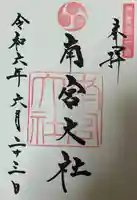 奉拝
南宮大社
令和六年六月二十三日